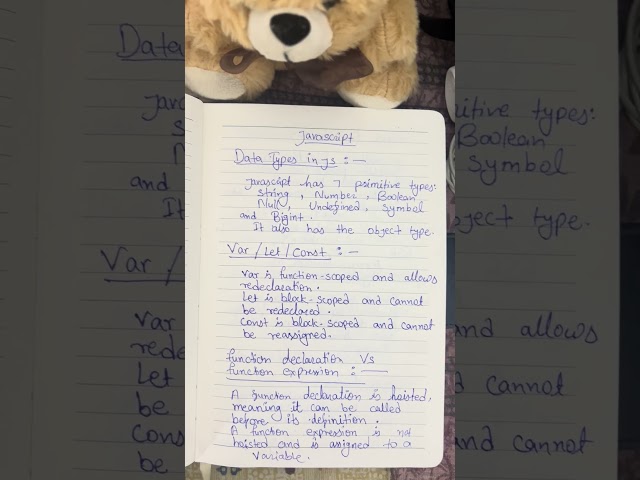 Javascript
Data Types in JS :-
Javascript has 7 primitive types:
String, Number, Boolean
Null, Undefined, Symbol
and Bigint.
It also has the object type.
Var / Let / Const :-
Var is function-scoped and allows
redeclaration.
Let is block-scoped and cannot
be redeclared.
Const is block-scoped and cannot
be reassigned.
function declaration Vs
function expression :-
A function declaration is hoisted,
meaning it can be called
before its definition.
A function expression is not
hoisted and is assigned to a
variable.